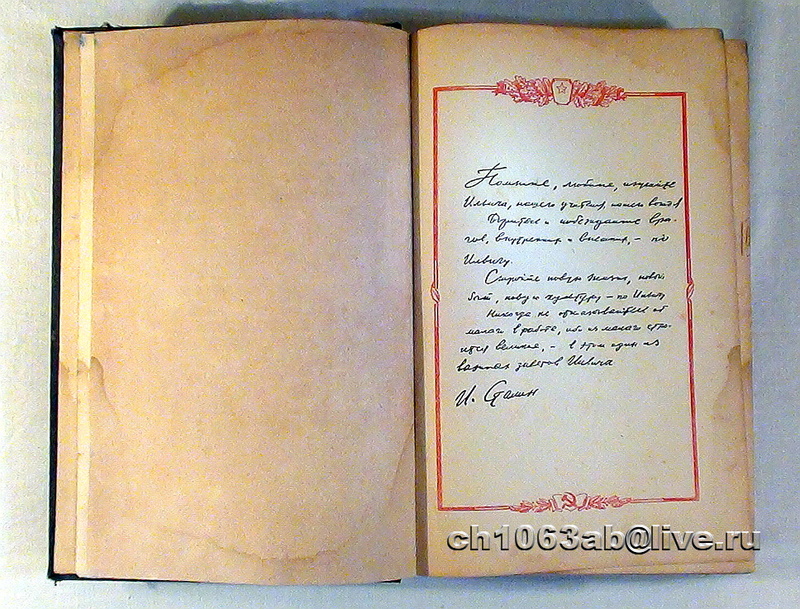 Помните, любите, изучайте
Ильича, нашего учителя, нашего вождя
Боритесь и побеждайте вра-
гов, внутренних и внешних, – по
Ильичу.
Стройте новую жизнь, новый
быт, новую культуру – по Ильичу
Никогда не отказывайтесь от
малого в работе, ибо из малого стро-
ится великое, – в этом один из
важных заветов Ильича
И. Сталин
ch1063ab@live.ru